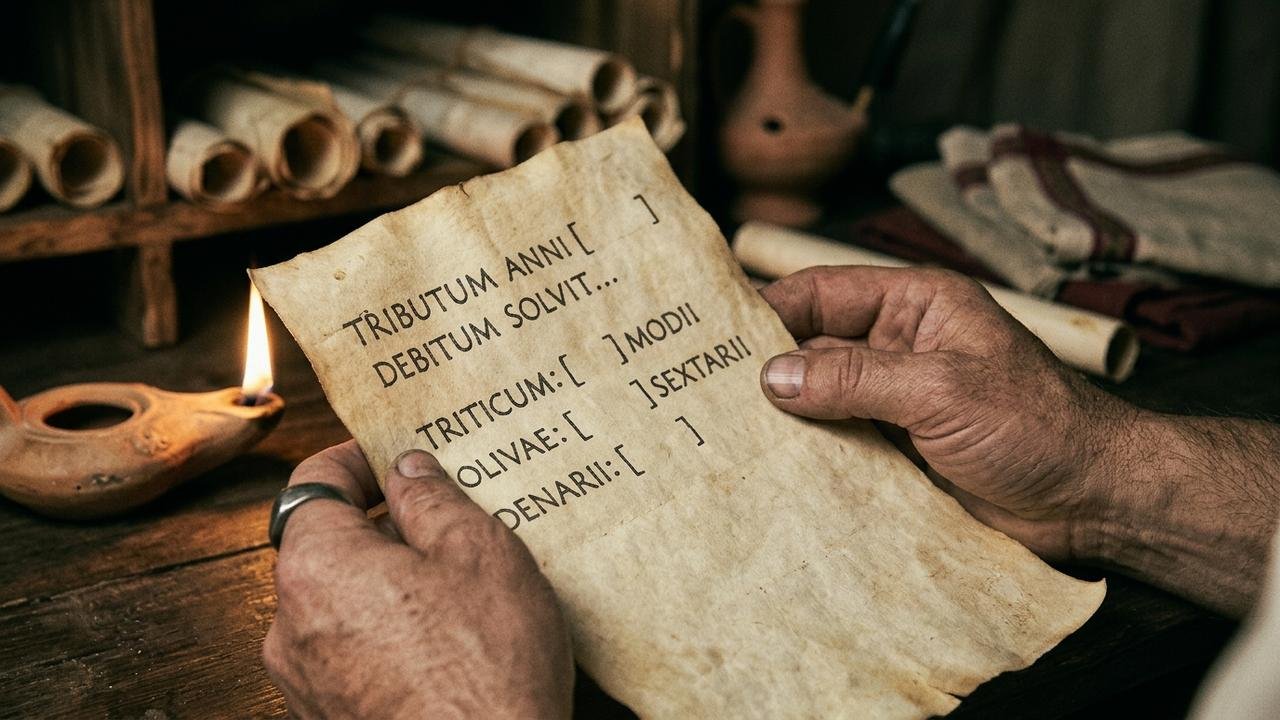 TRIBUTUM ANNI [ ]
DEBITUM SOLVIT...
TRITICUM: [ ] MODII
OLIVAE: [ ] SEXTARII
DENARII: [ ]